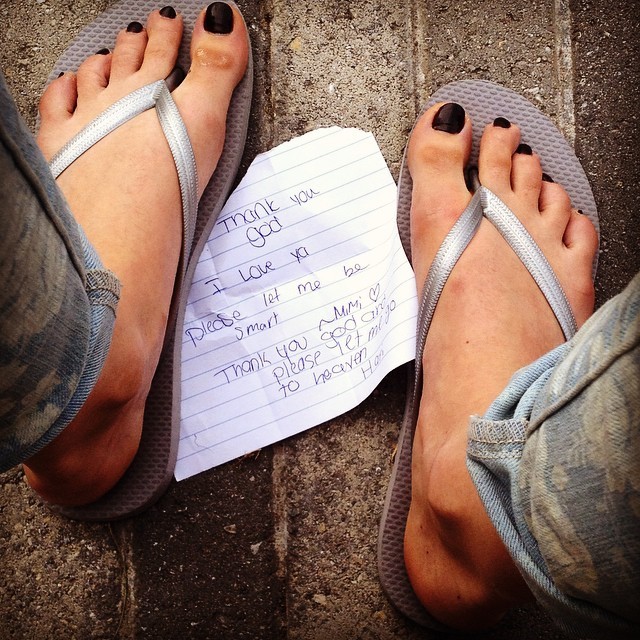 Thank you
god
I Love ya
please let me be
smart
~ Mimi ♡
Thank you god
please let me go
to heaven